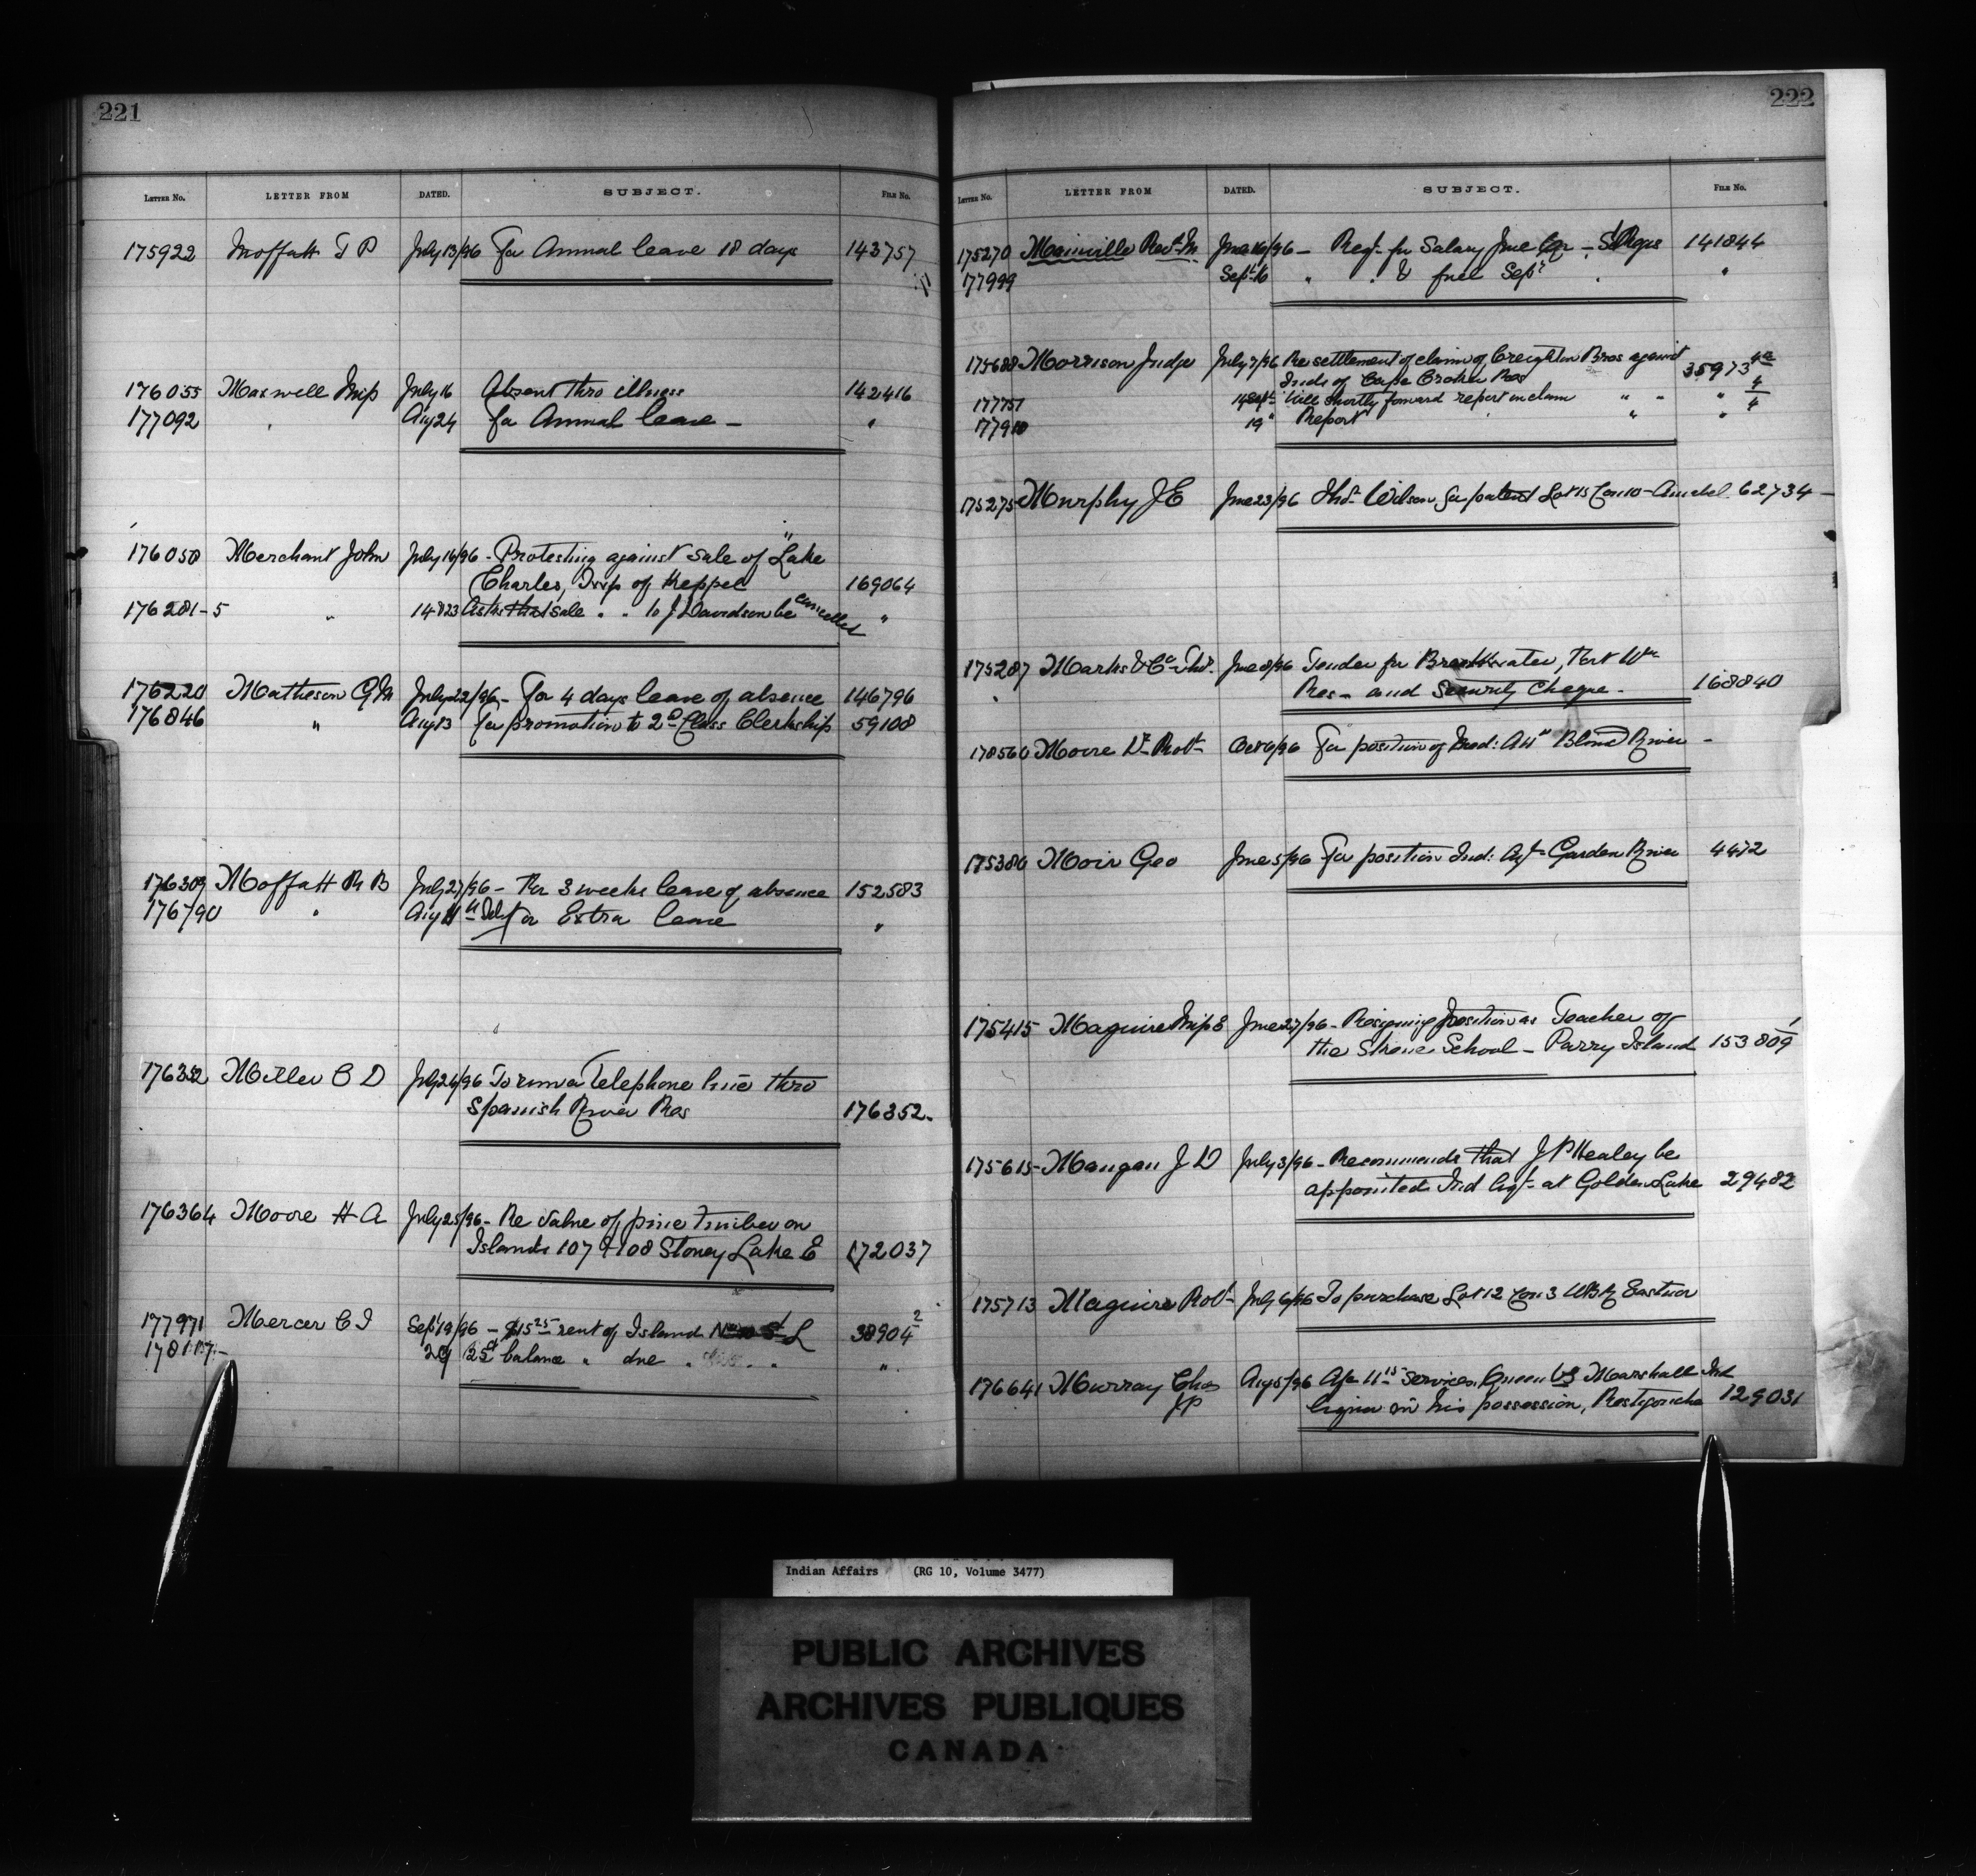 221
LETTER No. LETTER FROM DATED. SUBJECT. FILE No.
175922 Moffatt T P July 13/96 For Annual leave 18 days 143757
176055 Maxwell Miss July 16 Absent thro illness 142416
177092 " Aug 24 for Annual leave — "
176058 Merchant John July 16/96 - Protesting against sale of "Lake
Charles, Twp of Keppel 169064
176281-5 " 14 & 23 Asks that sale . . to J Davidson be cancelled "
176220 Matheson G M July 22/96 - For 4 days leave of absence 146796
176846 " Aug 13 for promotion to 2d Class Clerkship 59108
176309 Moffatt R B July 27/96 - For 3 weeks leave of absence 152583
176790 " Aug 11 for Extra leave "
176352 Miller C D July 24/96 To run a Telephone line thro
Spanish River Res 176352.
176364 Moore H A July 25/96 - Re value of pine timber on
Islands 107 & 108 Stoney Lake E 172037
177971 Mercer C I Sept 19/96 - $15 25 rent of Island L 38904 2
178117 - 29 25c balance " due . . . "
222
LETTER No. LETTER FROM DATED. SUBJECT. FILE No.
175270 Mainville Revd M June 16/96 - Reqt for Salary June Qr - St Regis 141844
177999 Sept 16 " " & fuel Sept . "
175688 Morrison Judge July 7/96 Re settlement of claim of Creighton Bros against
Inds of Cape Croker Res 35973 4a
177751 14 Sept Will shortly forward report on claim " " " 4
177910 19 " Report " " 4
175275 Murphy J E June 23/96 Thos Wilson for patent Lot 15 Con 10 - Amabel 62734 —
175287 Marks & Co Thos June 8/96 Tender for Breakwater, Fort Wm
" Res - and Security Cheque - 168840
178560 Moore Dr Robt Oct 6/96 For position of Med: Att Blind River -
175380 Moir Geo June 5/96 For position Ind: Agt Garden River 4472
175415 Maguire Miss E June 27/96 - Resigning position as Teacher of
the Skene School - Parry Island 153809 1
175615 - Mangan J D July 3/96 - Recommends that J P Healey be
appointed Ind Agt at Golden Lake 29482
175713 Maguire Robt - July 6/96 To purchase Lot 12 Con 3 WBR Eastnor
176641 Murray Chas Aug 5/96 Afc 11 15 services, Queen vs Marshall Ind
JP liquor in his possession, Restigouche 129031
Indian Affairs (RG 10, Volume 3477)
PUBLIC ARCHIVES
ARCHIVES PUBLIQUES
CANADA